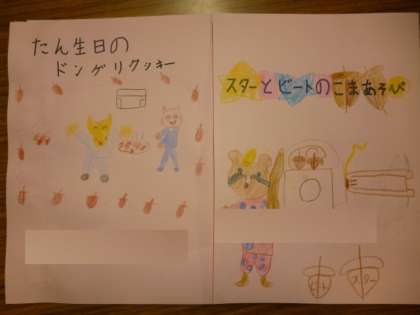 たん生日の
ドングリクッキー
スターとビートのこまあそび
ビート
スター